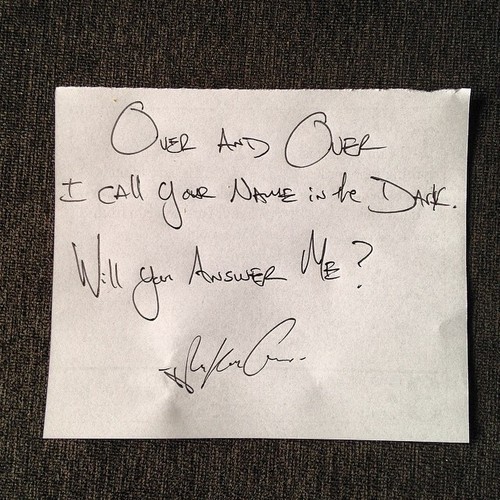 Over and Over
I call your Name in the Dark.
Will you Answer Me?